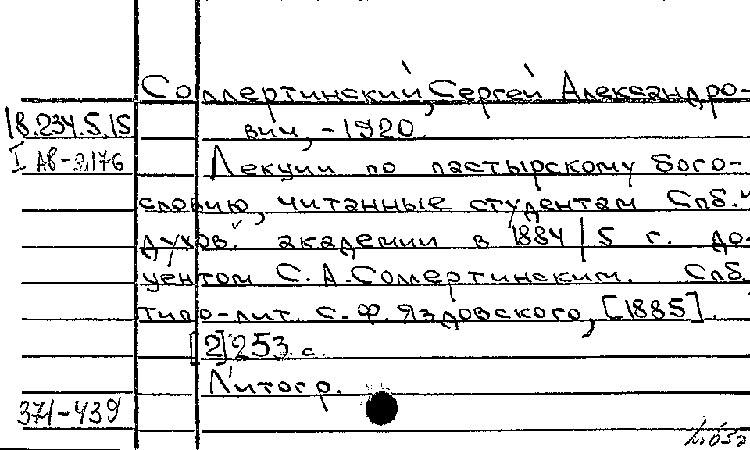 Соллертинский, Сергей Александро-
18.234.5.15
вич, -1920.
I АВ-2.176
Лекции по пастырскому бого-
словию, читанные студентам Спб.
духов. академии в 1884/5 г. до-
центом С. А. Соллертинским. Спб.
типо-лит. С. Ф. Яздовского, [1885]
[2] 253 с.
Литогр.
371-439